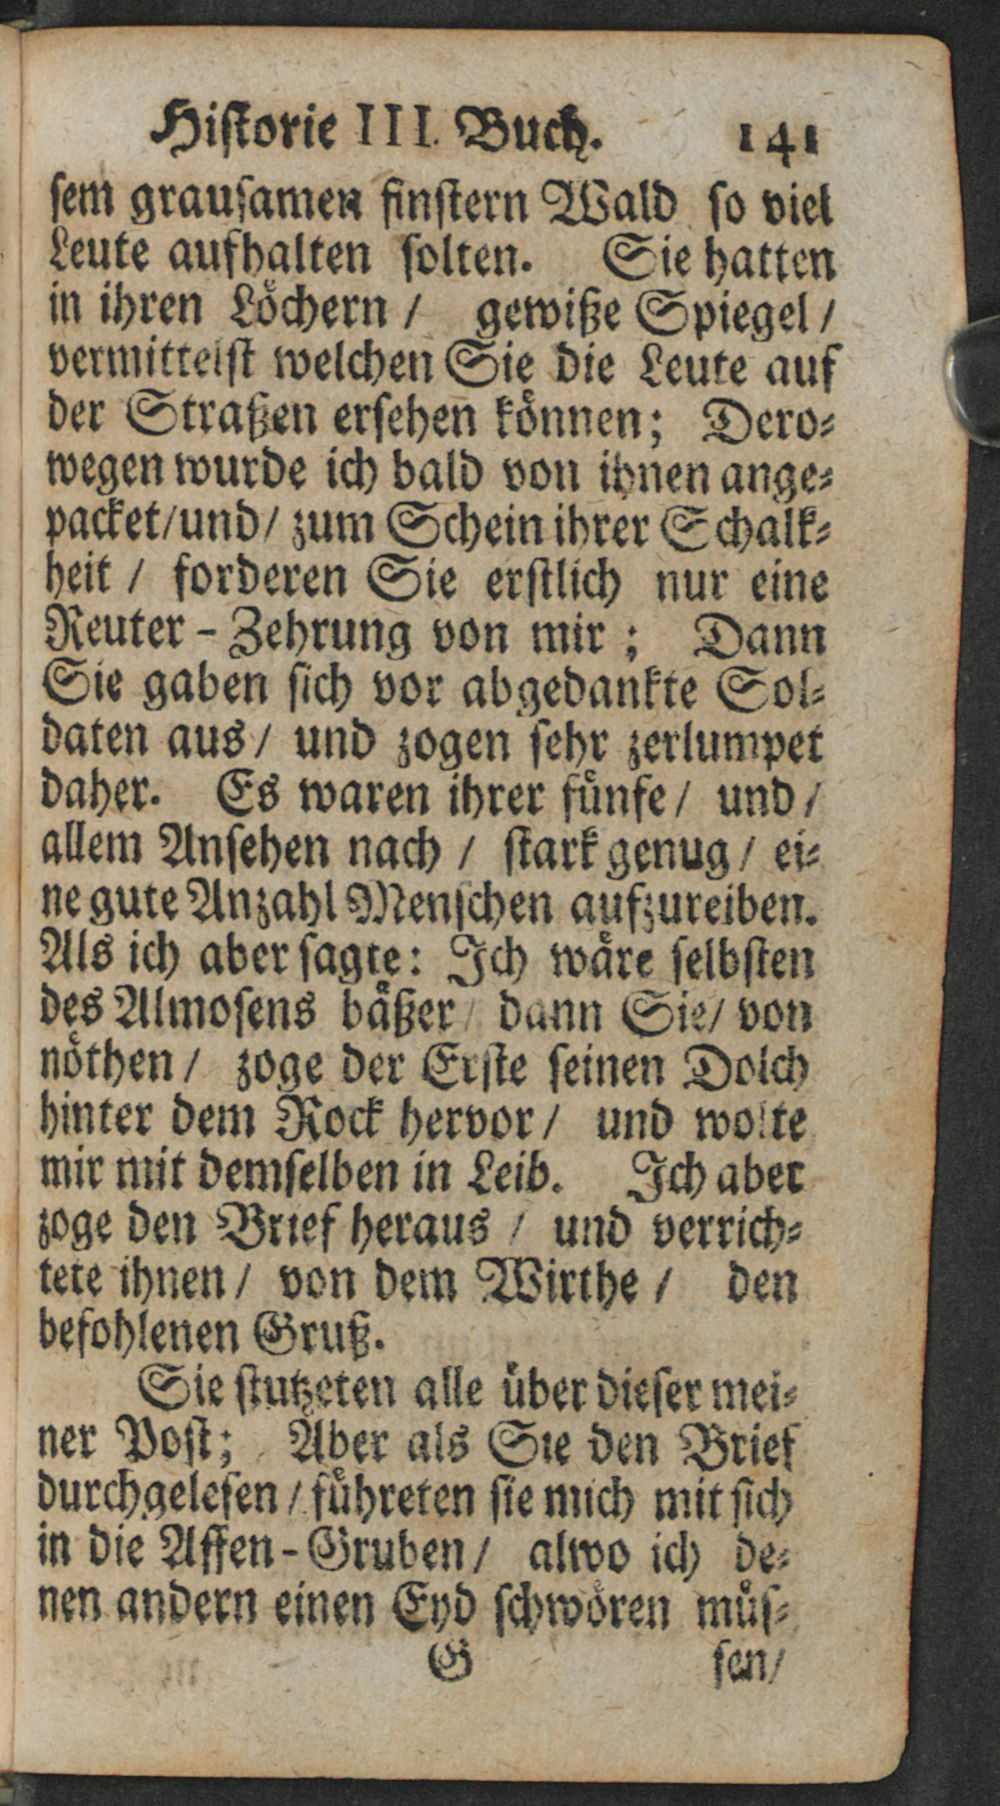 Historie III. Buch. 141
sem grausamen finstern Wald so viel
Leute aufhalten solten. Sie hatten
in ihren Löchern / gewiße Spiegel /
vermittelst welchen Sie die Leute auf
der Straßen ersehen können; Dero-
wegen wurde ich bald von ihnen ange-
packet/und/ zum Schein ihrer Schalk-
heit / forderen Sie erstlich nur eine
Reuter-Zehrung von mir ; Dann
Sie gaben sich vor abgedankte Sol-
daten aus/ und zogen sehr zerlumpet
daher. Es waren ihrer fünfe/ und/
allem Ansehen nach / stark genug/ ei-
ne gute Anzahl Menschen aufzureiben.
Als ich aber sagte: Ich wäre selbsten
des Almosens bäßer/ dann Sie/ von
nöthen/ zoge der Erste seinen Dolch
hinter dem Rock hervor/ und wolte
mir mit demselben in Leib. Ich aber
zoge den Brief heraus / und verrich-
tete ihnen/ von dem Wirthe / den
befohlenen Gruß.
Sie stutzeten alle über dieser mei-
ner Post; Aber als Sie den Brief
durchgelesen / führeten sie mich mit sich
in die Affen-Gruben/ alwo ich de-
nen andern einen Eyd schwören müs-
G sen/